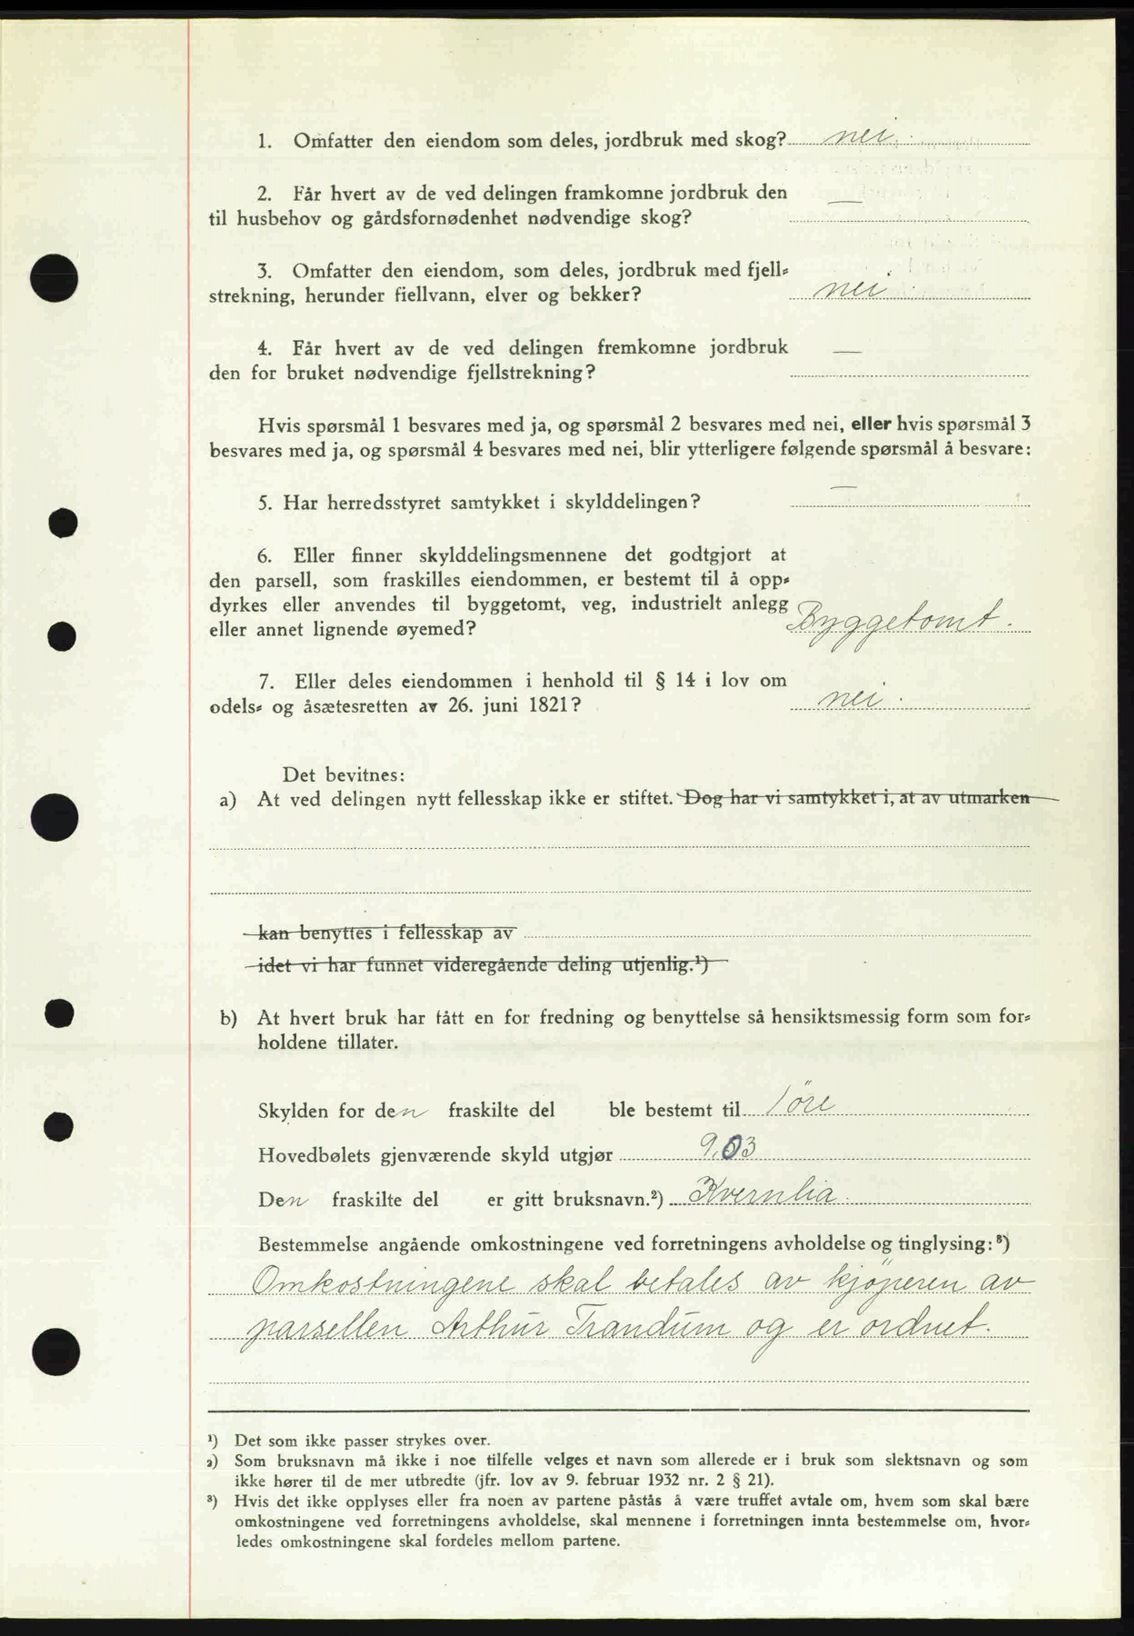 1. Omfatter den eiendom som deles, jordbruk med skog? nei.
2. Får hvert av de ved delingen framkomne jordbruk den
til husbehov og gårdsfornødenhet nødvendige skog? —
3. Omfatter den eiendom, som deles, jordbruk med fjell-
strekning, herunder fiellvann, elver og bekker? nei.
4. Får hvert av de ved delingen fremkomne jordbruk
den for bruket nødvendige fjellstrekning? —
Hvis spørsmål 1 besvares med ja, og spørsmål 2 besvares med nei, eller hvis spørsmål 3
besvares med ja, og spørsmål 4 besvares med nei, blir ytterligere følgende spørsmål å besvare:
5. Har herredsstyret samtykket i skylddelingen? —
6. Eller finner skylddelingsmennene det godtgjort at
den parsell, som fraskilles eiendommen, er bestemt til å opp-
dyrkes eller anvendes til byggetomt, veg, industrielt anlegg
eller annet lignende øyemed? Byggetomt.
7. Eller deles eiendommen i henhold til § 14 i lov om
odels- og åsætesretten av 26. juni 1821? nei.
Det bevitnes:
a) At ved delingen nytt fellesskap ikke er stiftet. Dog har vi samtykket i, at av utmarken
kan benyttes i fellesskap av
idet vi har funnet videregående deling utjenlig.¹)
b) At hvert bruk har fått en for fredning og benyttelse så hensiktsmessig form som for-
holdene tillater.
Skylden for den fraskilte del ble bestemt til 1 öre
Hovedbølets gjenværende skyld utgjør 9.03
Den fraskilte del er gitt bruksnavn.²) Kvernlia.
Bestemmelse angående omkostningene ved forretningens avholdelse og tinglysing:³)
Omkostningene skal betales av kjöperen av
parsellen Arthur Trandum og er ordnet.
¹) Det som ikke passer strykes over.
²) Som bruksnavn må ikke i noe tilfelle velges et navn som allerede er i bruk som slektsnavn og som
ikke hører til de mer utbredte (jfr. lov av 9. februar 1932 nr. 2 § 21).
³) Hvis det ikke opplyses eller fra noen av partene påstås å være truffet avtale om, hvem som skal bære
omkostningene ved forretningens avholdelse, skal mennene i forretningen innta bestemmelse om, hvor-
ledes omkostningene skal fordeles mellom partene.